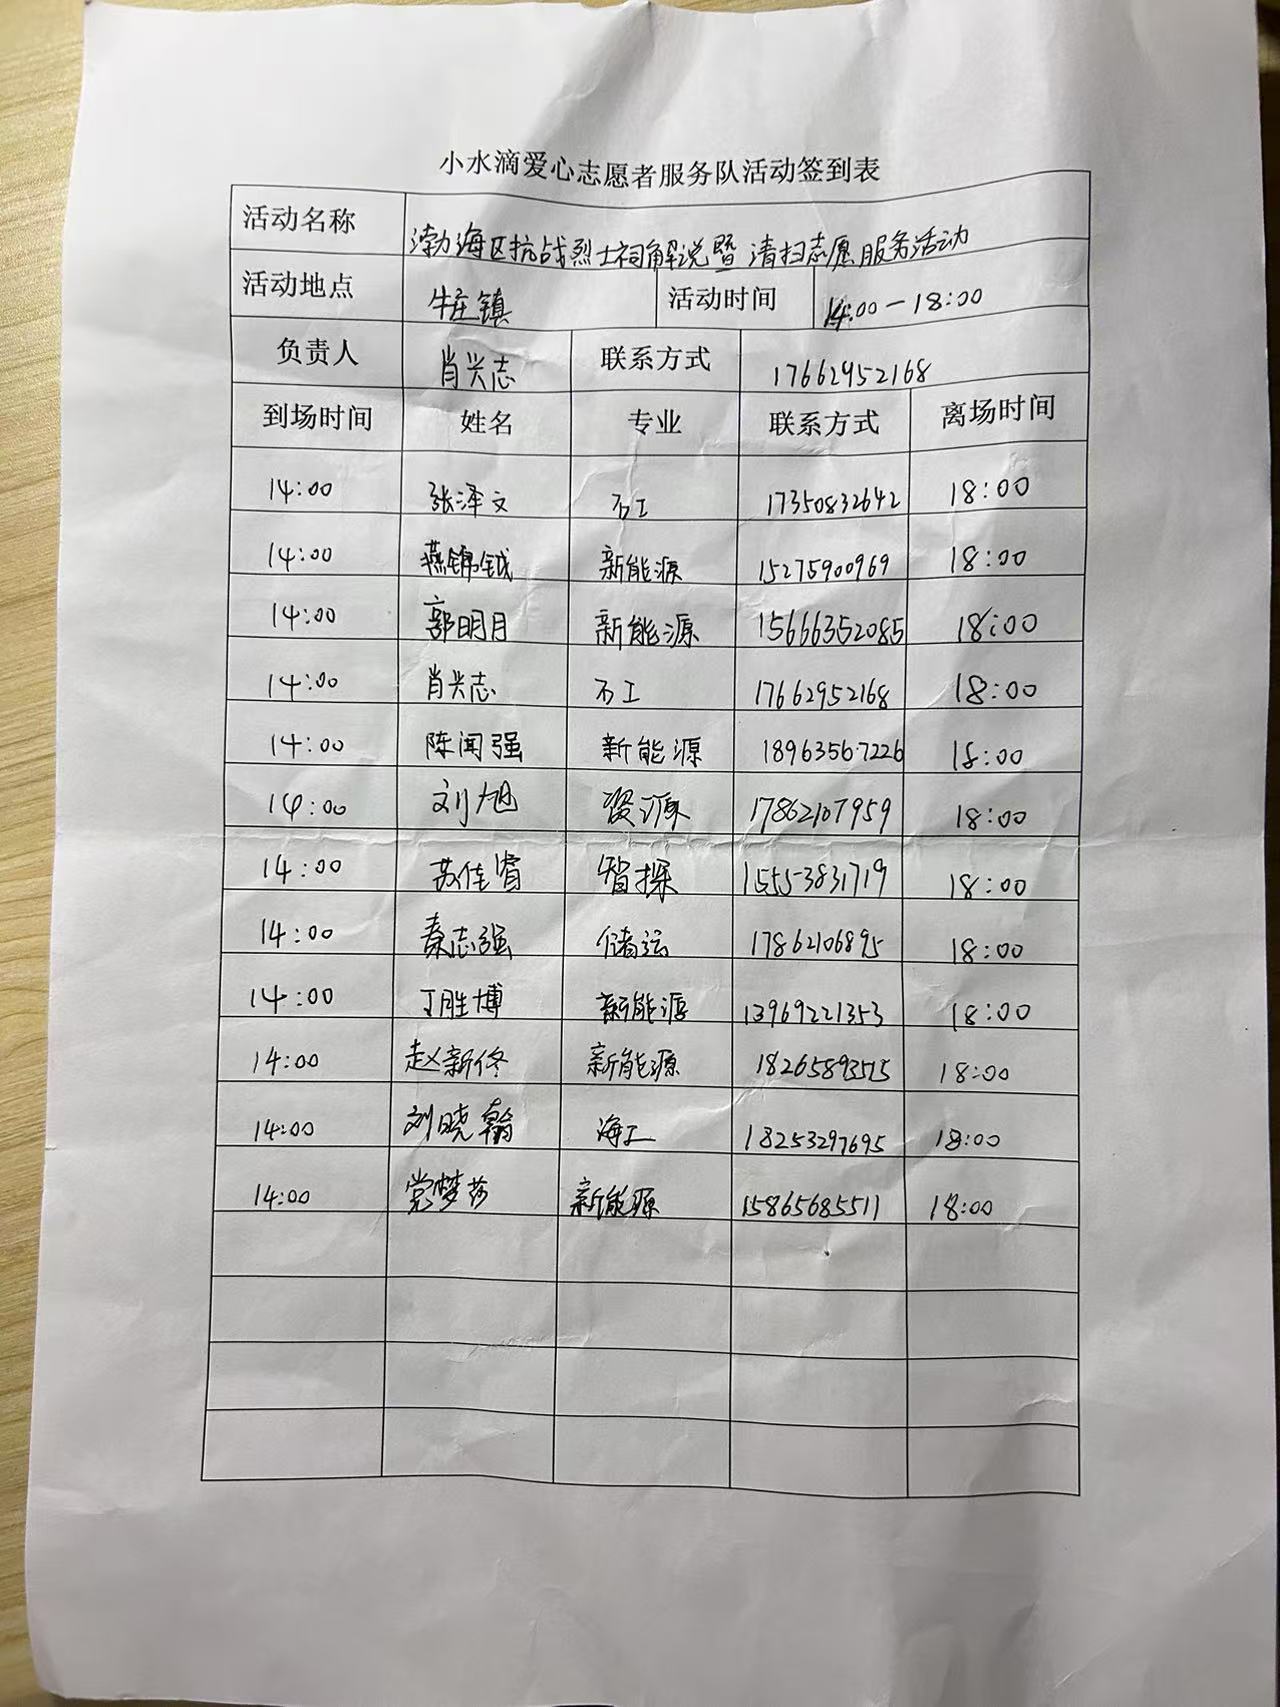 小水滴爱心志愿者服务队活动签到表
活动名称 渤海区抗战烈士祠解说暨清扫志愿服务活动
活动地点 牛庄镇 活动时间 14:00-18:00
负责人 肖兴志 联系方式 17662952168
到场时间 姓名 专业 联系方式 离场时间
14:00 张泽文 石工 17350832642 18:00
14:00 燕锦钺 新能源 15275900969 18:00
14:00 郭明月 新能源 15666352085 18:00
14:00 肖兴志 石工 17662952168 18:00
14:00 陈闻强 新能源 18963567226 18:00
14:00 刘旭 资源 17862107959 18:00
14:00 苏佳睿 智探 15553831719 18:00
14:00 秦志强 储运 17862106895 18:00
14:00 丁胜博 新能源 13969221353 18:00
14:00 赵新佟 新能源 18265893515 18:00
14:00 刘晓翰 海工 18253297695 18:00
14:00 党梦莎 新能源 15865685511 18:00